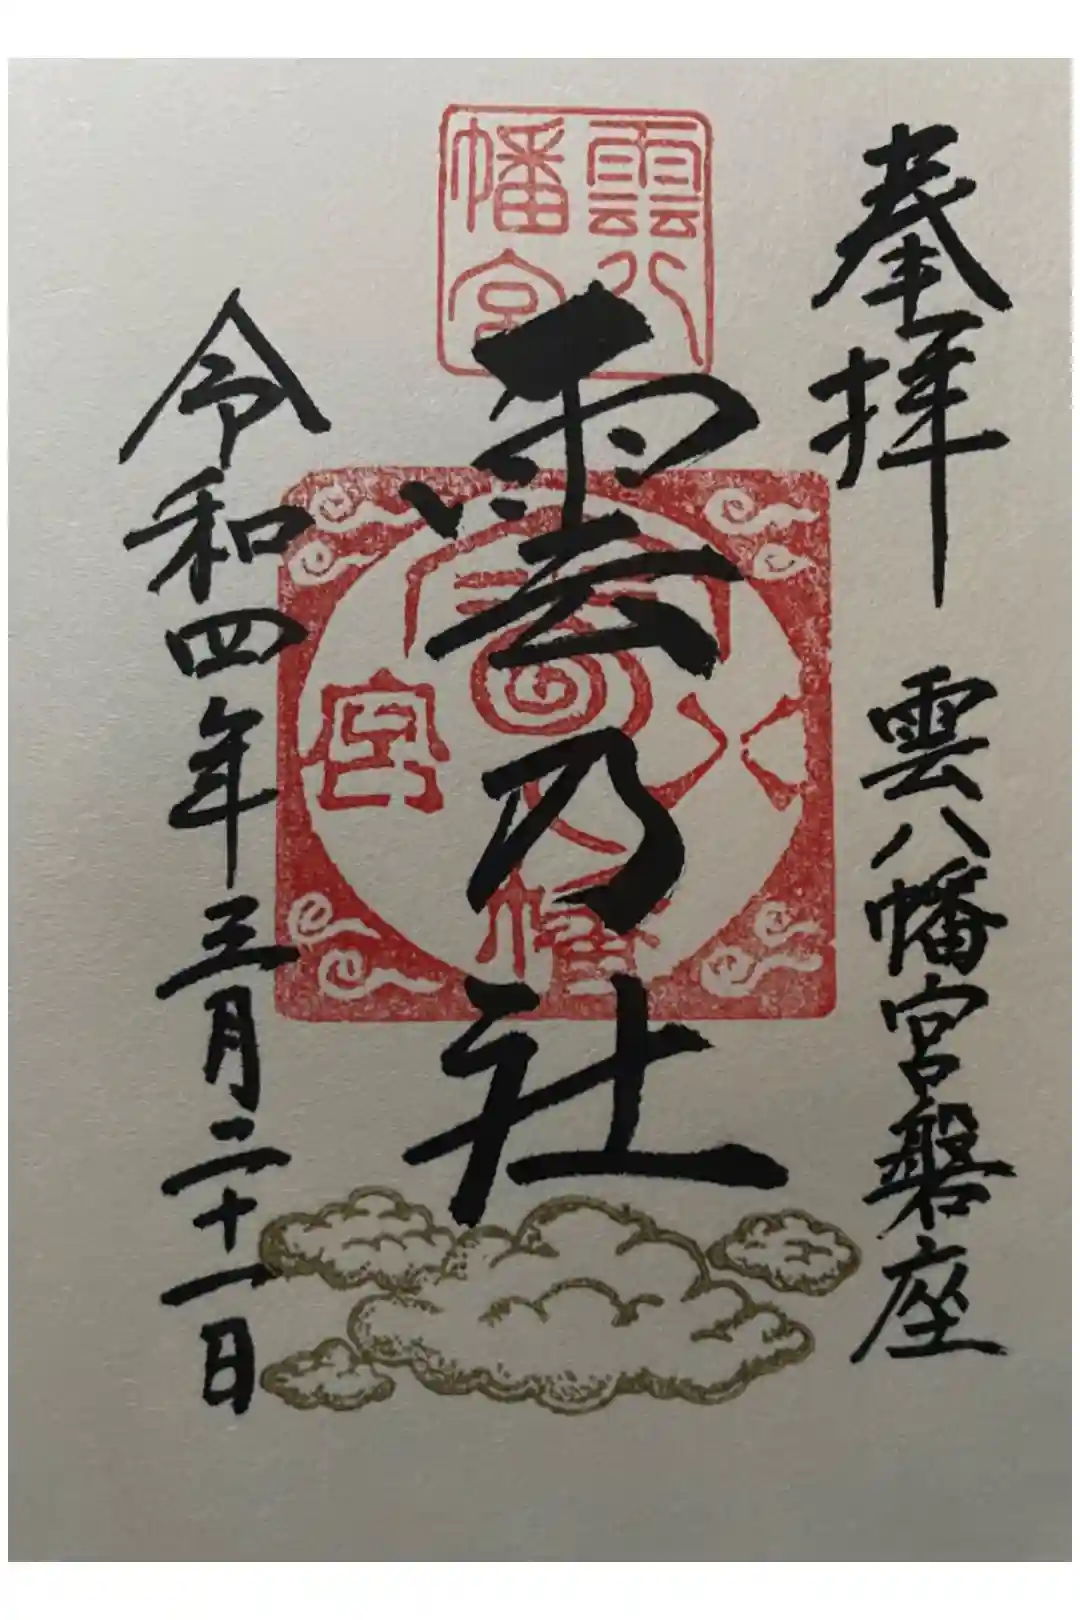 奉拝 雲八幡宮磐座
雲八
幡宮
雲乃社
雲
八
幡
宮
令和四年三月二十一日